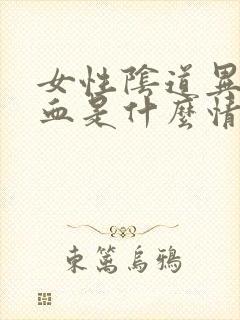 女性陰道異
血是什麼情
東籬烏鴉